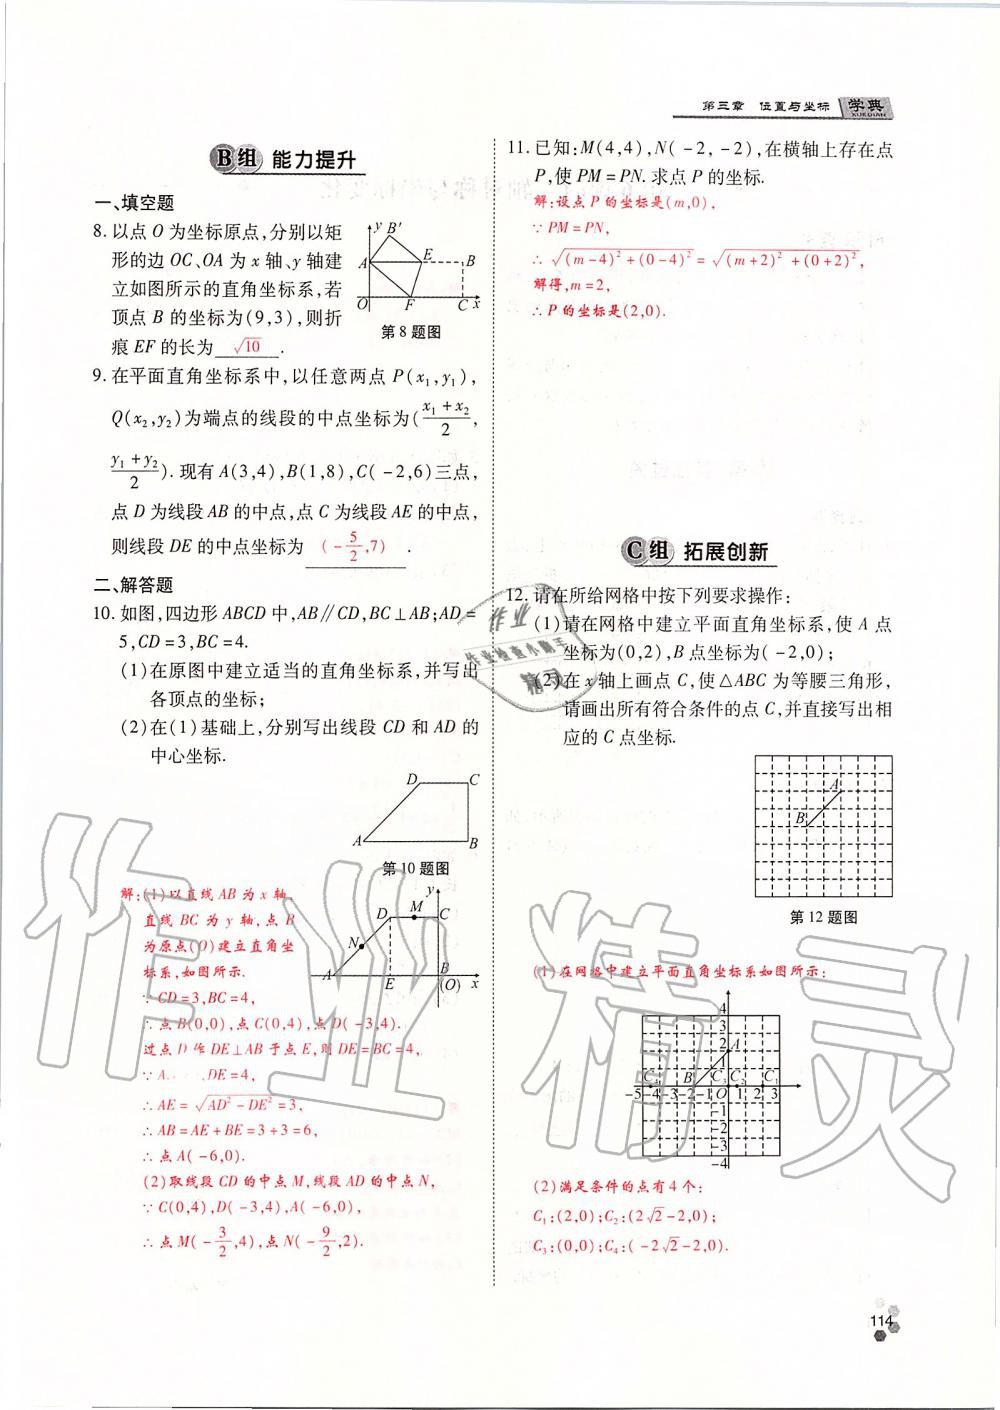 第三章 位置与坐标 学典
XUEDIAN
B组 能力提升
一、填空题
8. 以点 O 为坐标原点,分别以矩
形的边 OC、OA 为 x 轴、y 轴建
立如图所示的直角坐标系,若
顶点 B 的坐标为(9,3),则折
痕 EF 的长为 √10 .
y B′
A E B
O F C x
第8题图
9. 在平面直角坐标系中,以任意两点 P(x₁,y₁),
Q(x₂,y₂)为端点的线段的中点坐标为((x₁+x₂)/2,
(y₁+y₂)/2). 现有 A(3,4),B(1,8),C(-2,6)三点,
点 D 为线段 AB 的中点,点 C 为线段 AE 的中点,
则线段 DE 的中点坐标为 (-5/2,7) .
二、解答题
10. 如图,四边形 ABCD 中,AB∥CD,BC⊥AB;AD=
5,CD=3,BC=4.
(1)在原图中建立适当的直角坐标系,并写出
各顶点的坐标;
(2)在(1)基础上,分别写出线段 CD 和 AD 的
中心坐标.
D C
A B
第10题图
解:(1)以直线 AB 为 x 轴,
直线 BC 为 y 轴,点 B
为原点(O)建立直角坐
标系,如图所示.
y
D M C
N
A E B (O) x
∵CD=3,BC=4,
∴点 B(0,0),点 C(0,4),点 D(-3,4).
过点 D 作 DE⊥AB 于点 E,则 DE=BC=4,
∵A DE=4,
∴AE=√(AD²-DE²)=3,
∴AB=AE+BE=3+3=6,
∴点 A(-6,0).
(2)取线段 CD 的中点 M,线段 AD 的中点 N,
∵C(0,4),D(-3,4),A(-6,0),
∴点 M(-3/2,4),点 N(-9/2,2).
11. 已知:M(4,4),N(-2,-2),在横轴上存在点
P,使 PM=PN. 求点 P 的坐标.
解:设点 P 的坐标是(m,0),
∵PM=PN,
∴√((m-4)²+(0-4)²)=√((m+2)²+(0+2)²),
解得,m=2,
∴P 的坐标是(2,0).
C组 拓展创新
12. 请在所给网格中按下列要求操作:
(1)请在网格中建立平面直角坐标系,使 A 点
坐标为(0,2),B 点坐标为(-2,0);
(2)在 x 轴上画点 C,使△ABC 为等腰三角形,
请画出所有符合条件的点 C,并直接写出相
应的 C 点坐标.
A
B
第12题图
(1)在网格中建立平面直角坐标系如图所示:
4
3
2 A
1
C₄ B C₃ C₂ C₁
-5-4-3-2-1 O 1 2 3
-1
-2
-3
-4
(2)满足条件的点有4个:
C₁:(2,0);C₂:(2√2-2,0);
C₃:(0,0);C₄:(-2√2-2,0).
作业
作业检查小助手
精灵
作业精灵
114